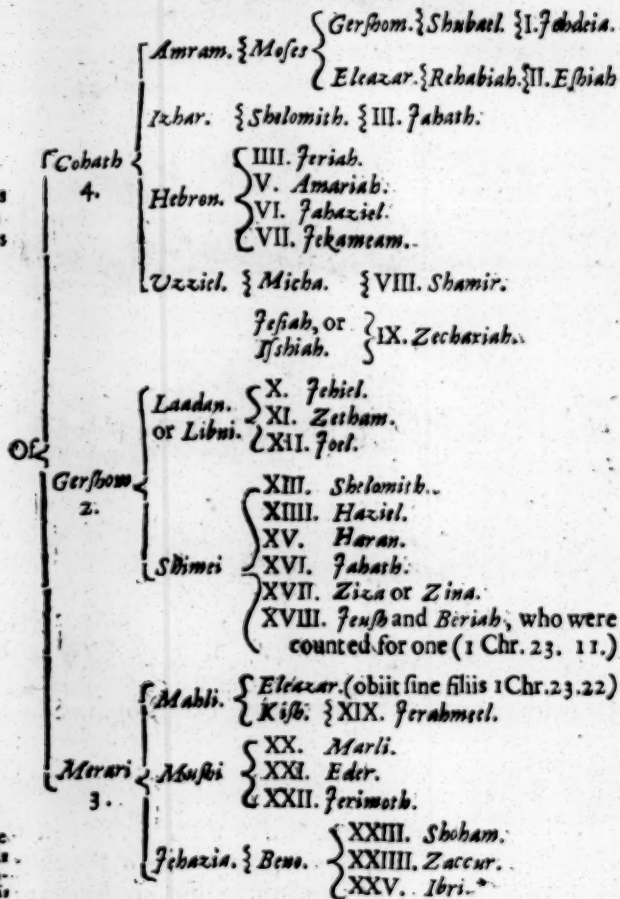 Gerſhom. Shubael. I. Jehdeia.
Amram. Moſes
Eleazar. Rehabiah. II. Eſhiah
Izhar. Shelomith. III. Jahath.
Cohath
4.
IIII. Jeriah.
V. Amariah.
Hebron.
VI. Jahaziel.
VII. Jekameam.
Uzziel. Micha. VIII. Shamir.
Jeſiah, or
Iſshiah.
IX. Zechariah.
Laadan.
or Libni.
X. Jehiel.
XI. Zetham.
XII. Joel.
Of
Gerſhom
2.
XIII. Shelomith.
XIIII. Haziel.
XV. Haran.
Shimei
XVI. Jahath.
XVII. Ziza or Zina.
XVIII. Jeuſh and Beriah, who were
counted for one (1 Chr. 23. 11.)
Mahli.
Eleazar. (obiit ſine filiis 1Chr.23.22)
Kiſh. XIX. Jerahmeel.
Merari
3.
Muſhi
XX. Marli.
XXI. Eder.
XXII. Jerimoth.
Jehazia. Beno.
XXIII. Shoham.
XXIIII. Zaccur.
XXV. Ibri.